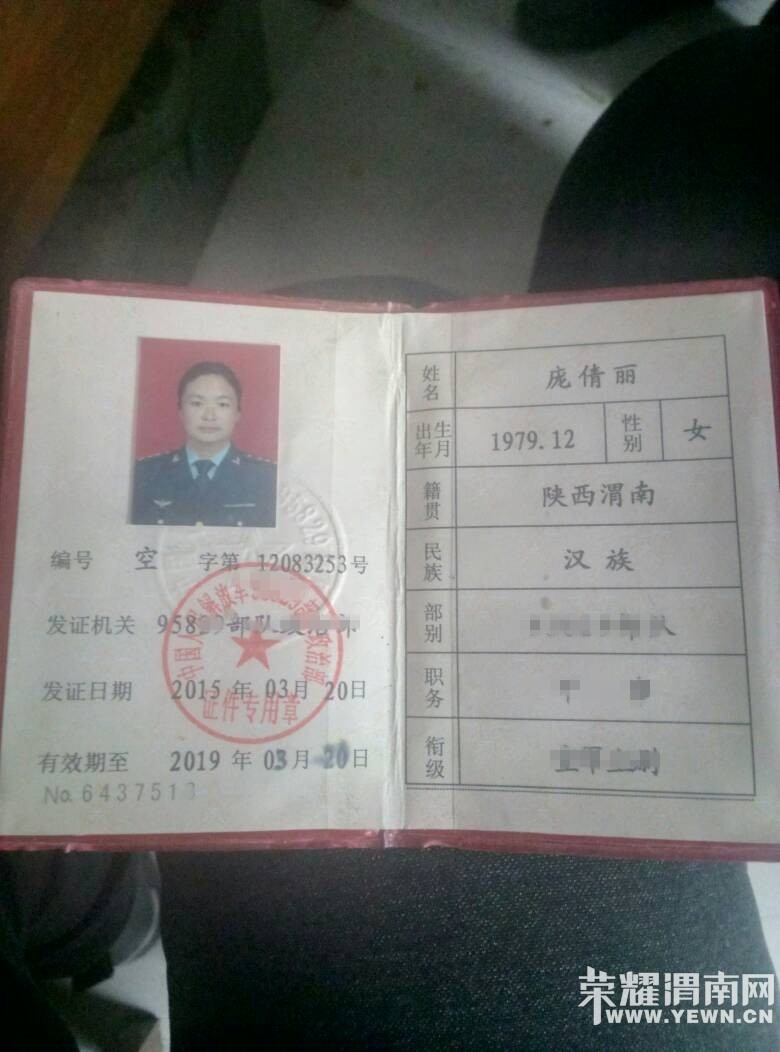 编号 空 字第 12083253号
发证机关
发证日期 2015 年 03月 20日
有效期至 2019 年 03月 20日
No. 6437513
证件专用章
姓名 庞倩丽
出生年月 1979.12 性别 女
籍贯 陕西渭南
民族 汉族
部别
职务
衔级
荣耀渭南网
WWW.YEWN.CN